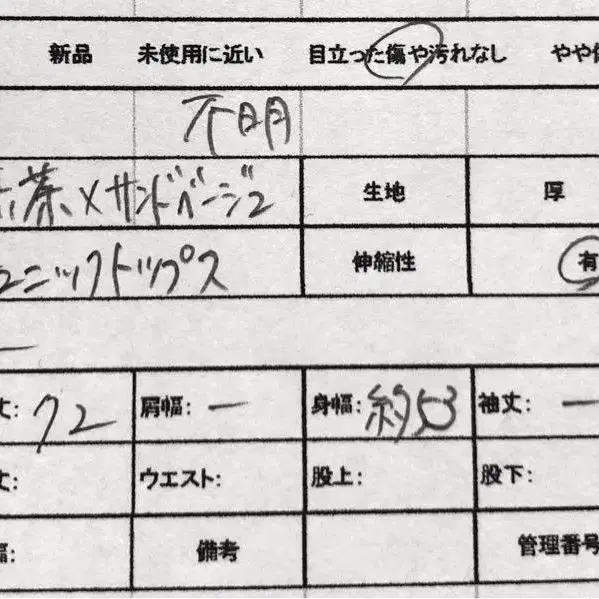 新品 未使用に近い 目立った傷や汚れなし やや
不明
茶×サンドベージュ 生地 厚
ニックトップス 伸縮性 有
丈: 72 肩幅: ー 身幅: 約53 袖丈: ー
丈: ウエスト: 股上: 股下:
幅: 備考 管理番号